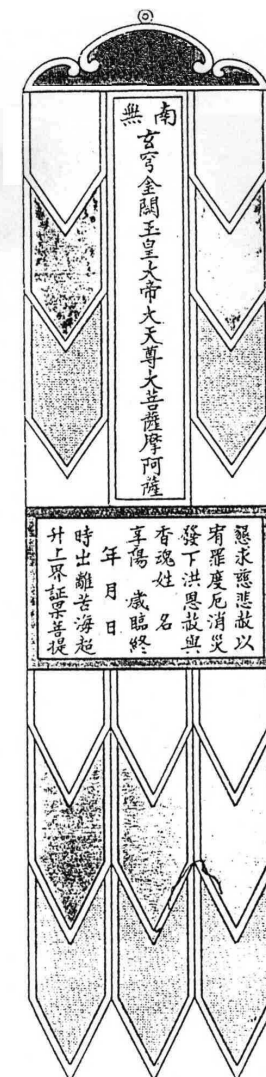 南無
玄穹金闕玉皇大帝大天尊大菩薩摩阿薩
懇求慈悲赦以
宥罪度厄消災
發下洪恩赦與
香魂姓 名
享陽 歲臨終
年 月 日
時出離苦海超
升上界証果菩提